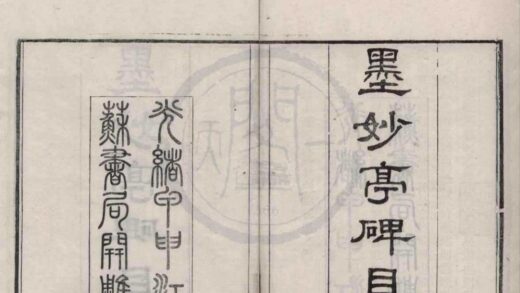 墨妙亭碑目
光緒甲申江
蘇書局開雕